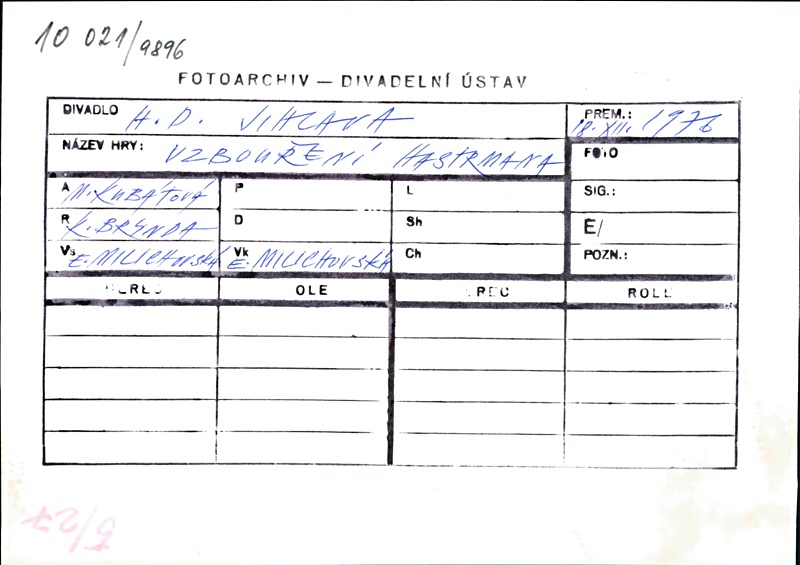 10 021/9896
FOTOARCHIV — DIVADELNÍ ÚSTAV
DIVADLO H.D. JIHLAVA
PREM.: 18.XII. 1976
NÁZEV HRY: VZBOUŘENÍ HASTRMANA
FOTO
A M.KUBÁTOVÁ P L SIG.:
R K.BRYNDA D Sh E/
Vs E.MILICHOVSKÁ Vk E.MILICHOVSKÁ Ch POZN.:
HEREC OLE EREC ROLE
5/27